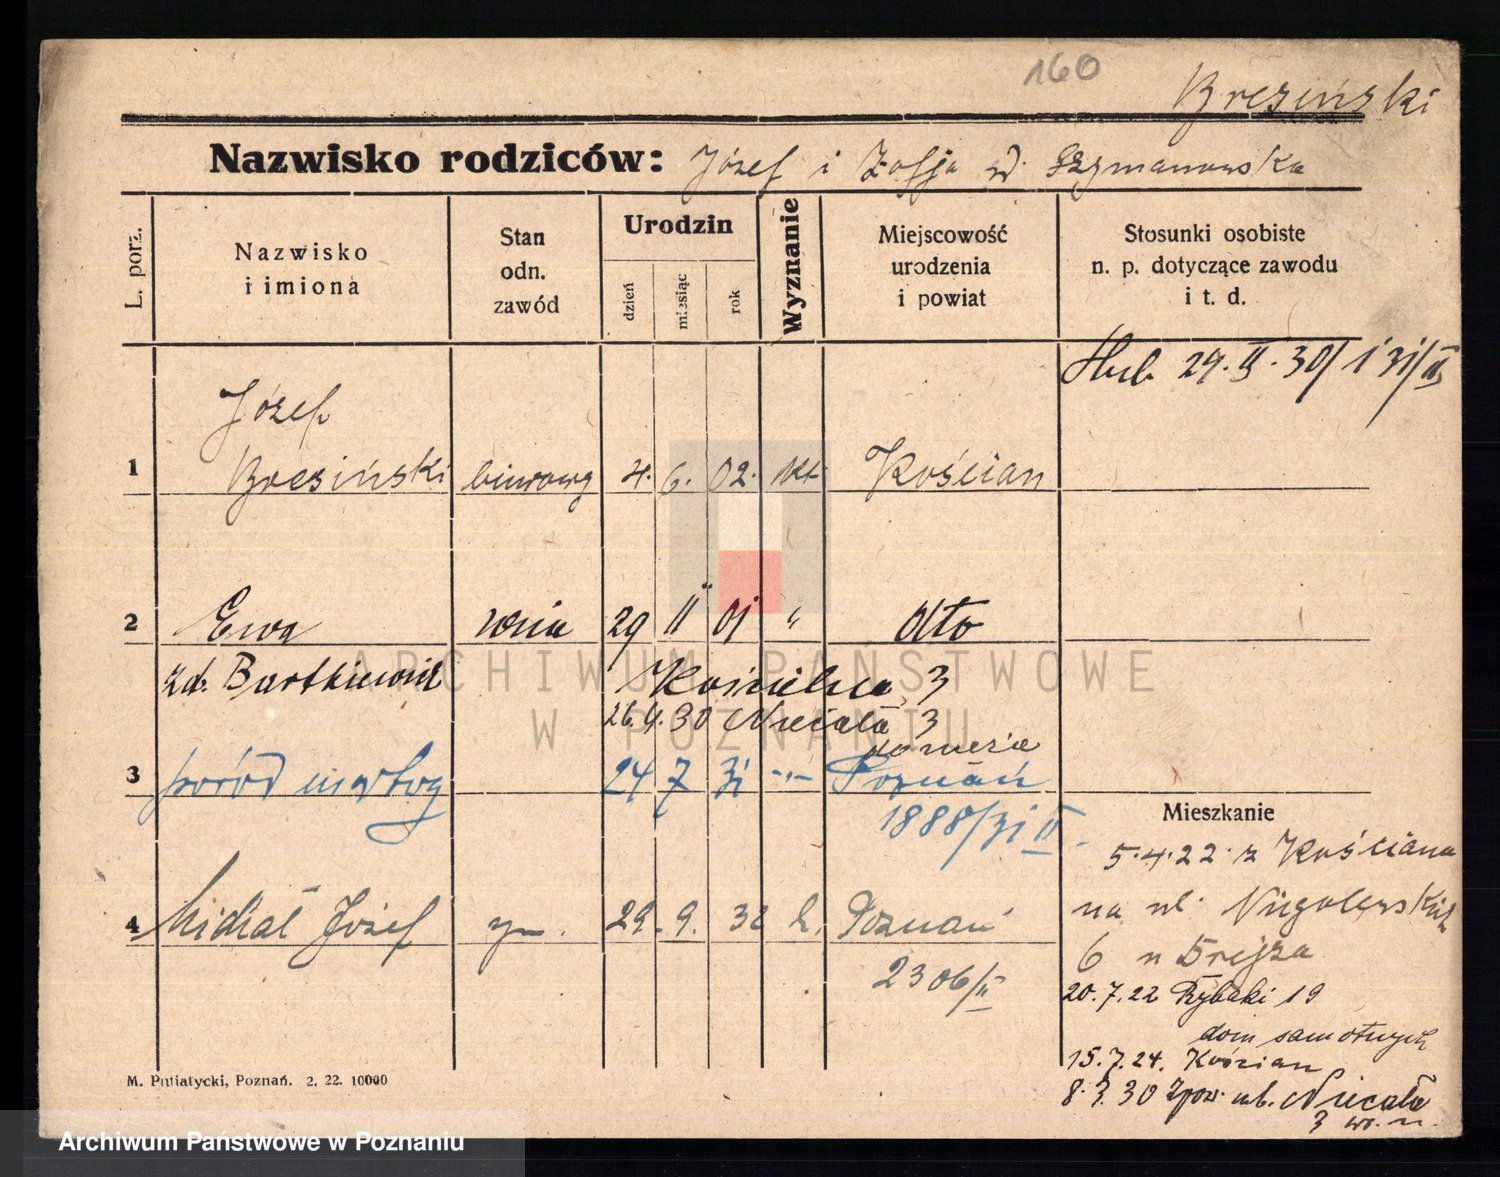 160
Bresiński
Nazwisko rodziców: Józef i Zofja zd. Szymanowska
L. porz.
Nazwisko
i imiona
Stan
odn.
zawód
Urodzin
dzień
miesiąc
rok
Wyznanie
Miejscowość
urodzenia
i powiat
Stosunki osobiste
n. p. dotyczące zawodu
i t. d.
29. II. 30
Józef
1 Bresiński biurowy 4. 6. 02. kt. Kościan
2 Ewa 29 II 01 " dto
zd. Bartkiewicz
3
26.4.30 Niecała 3
3 poród martwy 24 7 31 -"- Poznań
1888/31 II
4 Michał Józef 29. 9. 32 k. Poznań
2306/II
Mieszkanie
5.4.22. z Kościana
na ul. Niegolewskich
6
20.7.22 Rybaki 19
dom samotnych
15.7.24. Kościan
8.3.30 Niecała
3
M. Putiatycki, Poznań. 2. 22. 10000
ARCHIWUM PAŃSTWOWE
W POZNANIU
Archiwum Państwowe w Poznaniu